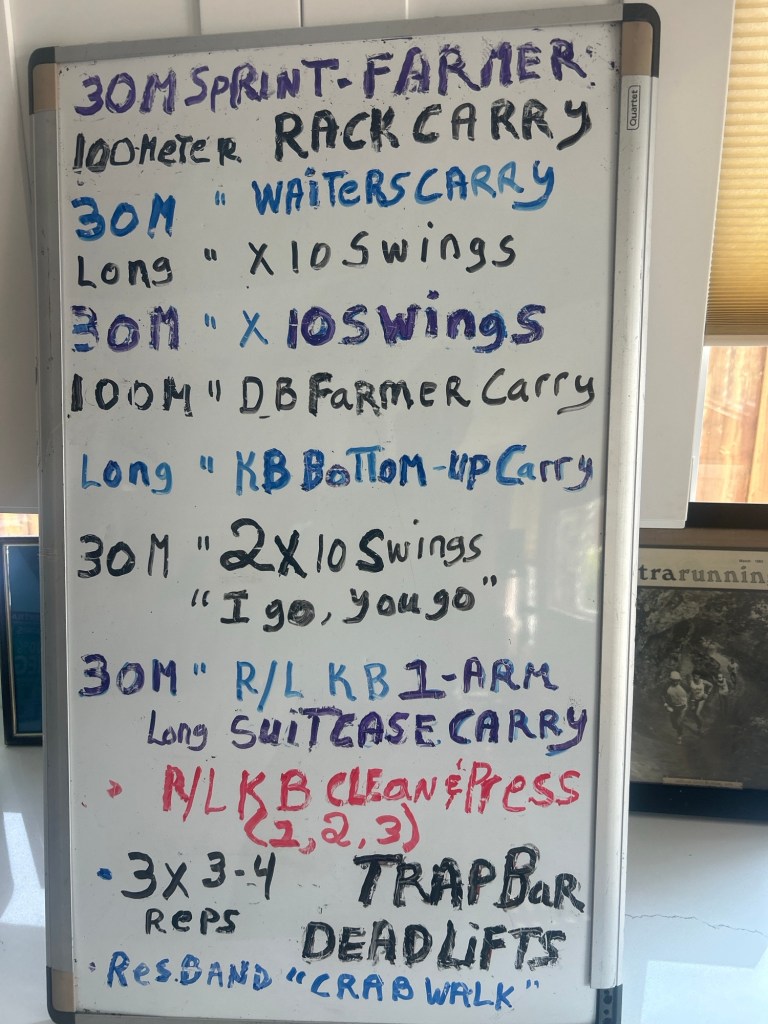 30M SPRINT-FARMER
100 METER RACK CARRY
30M " WAiTERS CARRY
Long " X 10 Swings
30M " X 10 Swings
100M " DB FaRmeR Carry
Long " KB BoTTOM-UP Carry
30M " 2X10 Swings
"I go, you go"
30M " R/L KB 1-ARM
Long SUiTCASE CARRY
R/L KB CLEAN & Press
(1,2,3)
• 3X 3-4 TRAP BaR
REPS DEADLiFTS
• Res.BAND "CRAB WALK"
Quartet
trarunnin